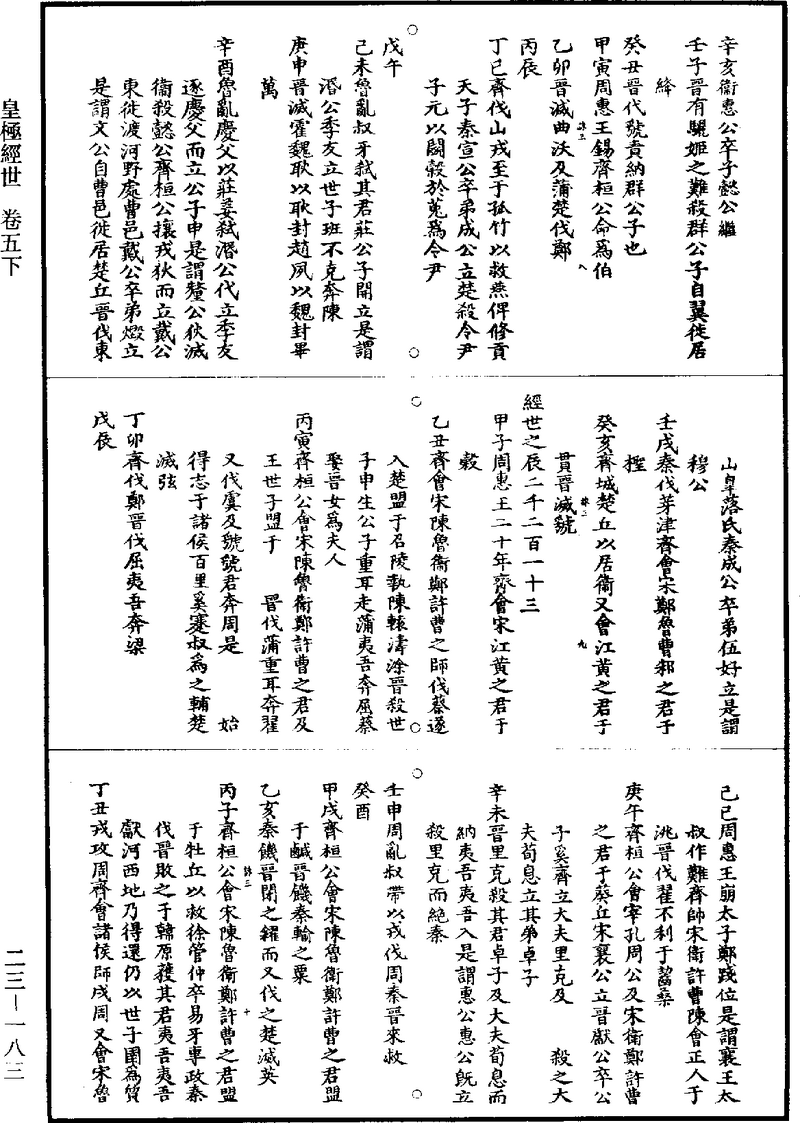 皇極經世　卷五下
辛亥衞惠公卒子懿公繼
壬子晉有驪姬之難殺群公子自翼徙居
絳
癸丑晉代虢責納群公子也
甲寅周惠王錫齊桓公命爲伯
乙卯晉滅曲沃及蒲楚伐鄭
丙辰
丁巳齊伐山戎至于孤竹以救燕俾修貢
天子秦宣公卒弟成公立楚殺令尹
子元以鬭穀於菟爲令尹
戊午
己未魯亂叔牙弑其君莊公子開立是謂
湣公季友立世子班不克奔陳
庚申晉滅霍魏耿以耿封趙夙以魏封畢
萬
辛酉魯亂慶父以莊姜弑湣公代立季友
逐慶父而立公子申是謂釐公狄滅
衞殺懿公齊桓公攘戎狄而立戴公
東徙渡河野處曹邑戴公卒弟燬立
是謂文公自曹邑徙居楚丘晉伐東
山皐落氏秦成公卒弟伍好立是謂
穆公
壬戌秦伐茅津齊會宋鄭魯曹邾之君于
檉
癸亥齊城楚丘以居衞又會江黃之君于
貫晉滅虢
經世之辰二千二百一十三
甲子周惠王二十年齊會宋江黃之君于
穀
乙丑齊會宋陳魯衞鄭許曹之師伐蔡遂
入楚盟于召陵執陳轅濤涂晉殺世
子申生公子重耳走蒲夷吾奔屈蔡
娶晉女爲夫人
丙寅齊桓公會宋陳魯衞鄭許曹之君及
王世子盟于　晉伐蒲重耳奔翟
又伐虞及虢虢君奔周是　始
得志于諸侯百里奚蹇叔爲之輔楚
滅弦
丁卯齊伐鄭晉伐屈夷吾奔梁
戊辰
己巳周惠王崩太子鄭踐位是謂襄王太
叔作難齊帥宋衞許曹陳會正人于
洮晉伐翟不利于齧桑
庚午齊桓公會宰孔周公及宋衞鄭許曹
之君于葵丘宋襄公立晉獻公卒公
子奚齊立大夫里克及　殺之大
夫荀息立其弟卓子
辛未晉里克殺其君卓子及大夫荀息而
納夷吾夷吾入是謂惠公惠公既立
殺里克而絶秦
壬申周亂叔帶以戎伐周秦晉來救
癸酉
甲戌齊桓公會宋陳魯衞鄭許曹之君盟
于鹹晉饑秦輸之粟
乙亥秦饑晉閉之糴而又伐之楚滅英
丙子齊桓公會宋陳魯衞鄭許曹之君盟
于牡丘以救徐管仲卒易牙專政秦
伐晉敗之于韓原獲其君夷吾夷吾
獻河西地乃得還仍以世子圉為質
丁丑戎攻周齊會諸侯師戍周又會宋魯
二三—一八三